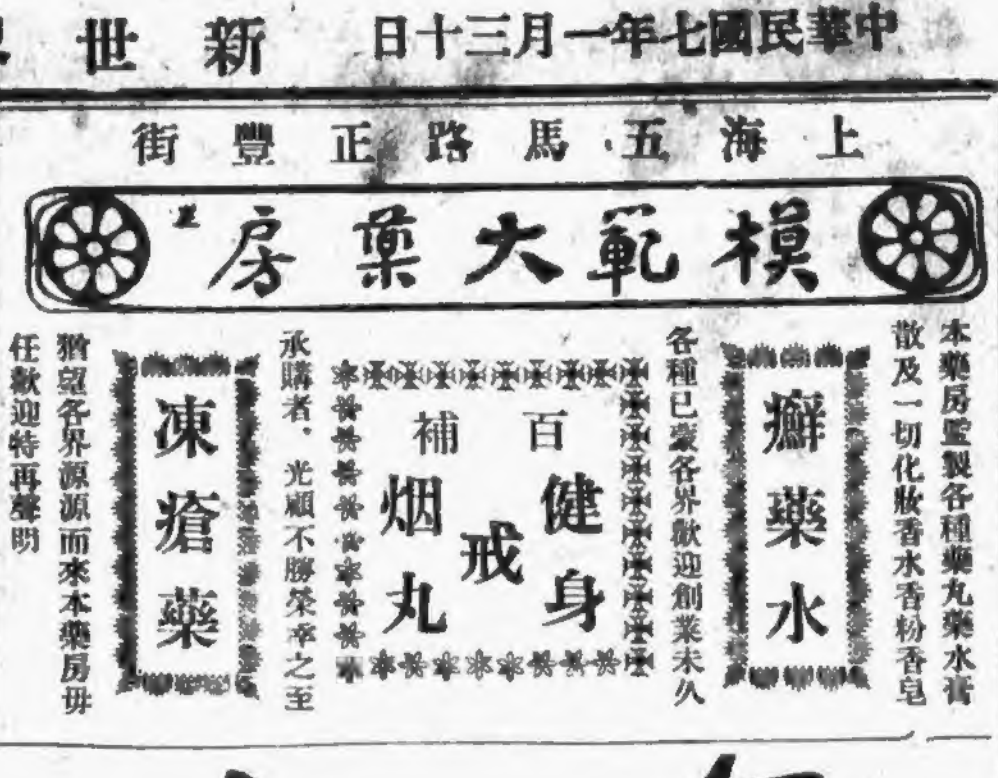 中華民國七年一月三十日
新世界
上海五馬路正豐街
模範大藥房
本藥房監製各種藥丸藥水膏
散及一切化妝香水香粉香皂
癬藥水
各種已蒙各界歡迎創業未久
百補
健身戒烟丸
承購者、光顧不勝榮幸之至
凍瘡藥
猶望各界源源而來本藥房毋
任歡迎特再聲明